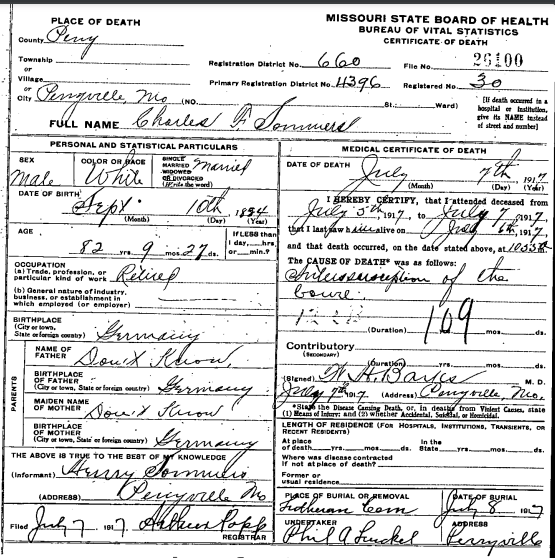 MISSOURI STATE BOARD OF HEALTH
BUREAU OF VITAL STATISTICS
CERTIFICATE OF DEATH
PLACE OF DEATH
County Perry
Township
or
Village
or
City Perryville Mo (NO. St.; Ward)
Registration District No. 660 File No. 26100
Primary Registration District No. 4396 Registered No. 30
[If death occurred in a hospital or institution, give its NAME instead of street and number]
FULL NAME Charles F Sommers
PERSONAL AND STATISTICAL PARTICULARS
SEX Male
COLOR OR RACE White
SINGLE MARRIED WIDOWED OR DIVORCED (Write the word) Married
DATE OF BIRTH Sept. 10th, 1834
(Month) (Day) (Year)
AGE 82 yrs. 9 mos. 27 ds.
If LESS than 1 day,....hrs. or....min.?
OCCUPATION
(a) Trade, profession, or particular kind of work Retired
(b) General nature of industry, business, or establishment in which employed (or employer)
BIRTHPLACE
(City or town, State or foreign country) Germany
PARENTS
NAME OF FATHER Don't Know
BIRTHPLACE OF FATHER (City or town, State or foreign country) Germany
MAIDEN NAME OF MOTHER Don't Know
BIRTHPLACE OF MOTHER (City or town, State or foreign country) Germany
THE ABOVE IS TRUE TO THE BEST OF MY KNOWLEDGE
(Informant) Henry Sommers
(ADDRESS) Perryville Mo
Filed July 7 1917 Popp
REGISTRAR
MEDICAL CERTIFICATE OF DEATH
DATE OF DEATH July 7th, 1917
(Month) (Day) (Year)
I HEREBY CERTIFY, that I attended deceased from
July 5th 1917, to July 7, 1917,
that I last saw him alive on July 6th, 1917,
and that death occurred, on the date stated above, at m.
The CAUSE OF DEATH* was as follows:
of the
(Duration) yrs. mos. ds.
109
Contributory
(SECONDARY)
(Duration) yrs. mos. ds.
(Signed) M. D.
July 7th 1917 (Address) Perryville, Mo.
*State the Disease Causing Death, or, in deaths from Violent Causes, state (1) Means of Injury; and (2) whether Accidental, Suicidal, or Homicidal.
LENGTH OF RESIDENCE (FOR HOSPITALS, INSTITUTIONS, TRANSIENTS, OR RECENT RESIDENTS)
At place of death yrs. mos. ds. In the State yrs. mos. ds.
Where was disease contracted if not at place of death?
Former or usual residence
PLACE OF BURIAL OR REMOVAL Lutheran Cem
DATE OF BURIAL July 8 1917
UNDERTAKER Phil A
ADDRESS Perryville